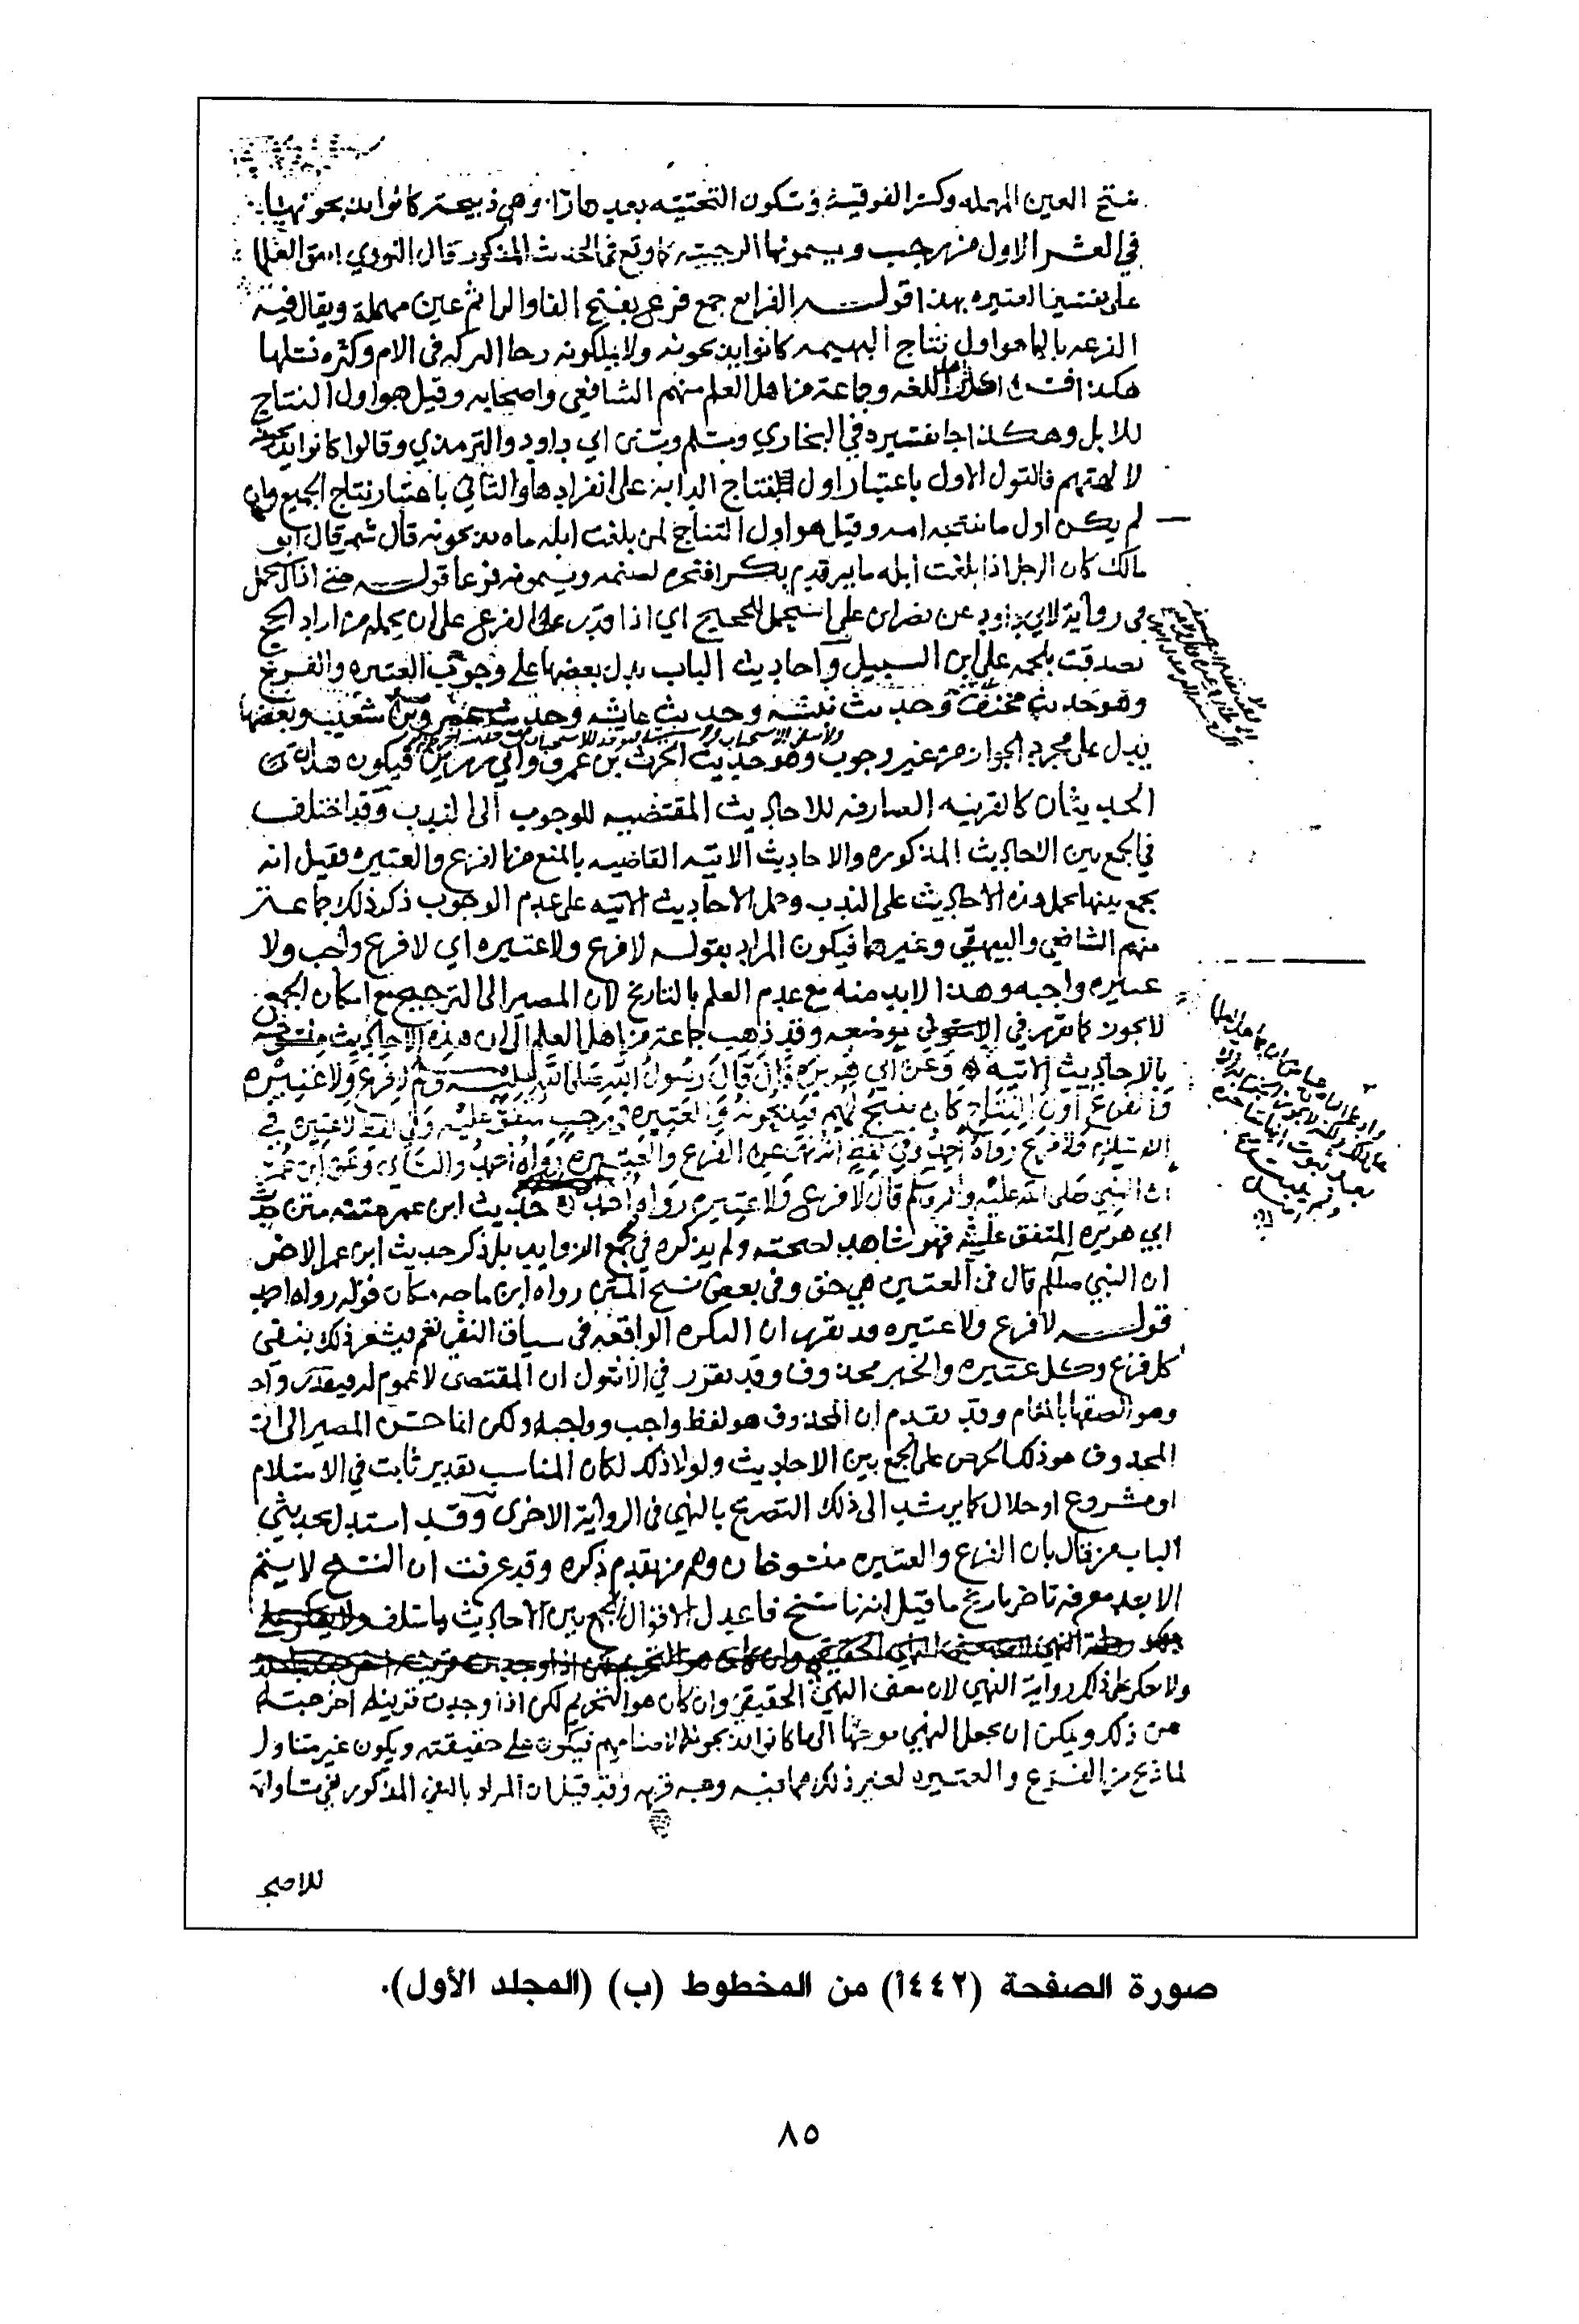 بفتح العين المهمله وكسر الفوقية وسكون التحتيه بعدها را وهي ذبيحة كانوا يذبحونها
في العشر الاول من رجب ويسمونها الرجبيه كما وقع في الحديث المذكور قال النووي اتفق العلما
على تفسير العتيره بهذا قولـه الفرع جمع فرع بفتح الفا والرا ثم عين مهملة ويقال فيه
الفرعه بالها هو اول نتاج البهيمه كانوا يذبحونه ولا يملكونه رجا البركه في الام وكثره نسلها
هكذا فسره اكثر اهل اللغه وجماعة من اهل العلم منهم الشافعي واصحابه وقيل هو اول النتاج
للابل وهكذا جا تفسيره في البخاري ومسلم وسنن ابي داود والترمذي وقالوا كانوا يذبحونه
لالهتهم فالقول الاول باعتبار اول نتاج الدابة على انفرادها والثاني باعتبار نتاج الجميع وان
لم يكن اول ما تنتجه امه وقيل هو اول النتاج لمن بلغت ابله مايه يذبحونه قال شمر قال ابو
مالك كان الرجل اذا بلغت ابله مايه قدم بكرا فنحره لصنمه ويسمونه فرعا قولـه حتى اذا استحمل
في رواية لابي داود عن نصر بن علي استحمل للحجيج اي اذا قدر الفرع على ان يحمله من اراد الحج
تصدقت بلحمه على ابن السبيل واحاديث الباب يدل بعضها على وجوب العتيره والفرع
وهو حديث مخنف وحديث نبيشه وحديث عايشه وحديث عمرو بن شعيب وبعضها
يدل على مجرد الجواز من غير وجوب وهو حديث الحرث بن عمرو وابي رزين فيكون هذان
الحديثان كالقرينه الصارفه للاحاديث المقتضيه للوجوب الى الندب وقد اختلف
في الجمع بين الاحاديث المذكوره والاحاديث الاتيه القاضيه بالمنع من الفرع والعتيره فقيل انه
يجمع بينها بحمل هذه الاحاديث على الندب وحمل الاحاديث الاتيه على عدم الوجوب ذكر ذلك جماعة
منهم الشافعي والبيهقي وغيرهما فيكون المراد بقوله لا فرع ولا عتيره اي لا فرع واجب ولا
عتيره واجبه وهذا لا بد منه مع عدم العلم بالتاريخ لان المصير الى الترجيح مع امكان الجمع
لا يجوز كما تقرر في موضعه وقد ذهب جماعة من اهل العلم الى ان هذه الاحاديث منسوخه
بالاحاديث الاتيه وعن ابي هريره قال قال رسول الله صلى الله عليه وسلم لا فرع ولا عتيره
والفرع اول النتاج كان ينتج لهم فيذبحونه والعتيره في رجب متفق عليه وفي لفظ لا عتيره في
الاسلام ولا فرع رواه احمد وفي لفظ انه نهى عن الفرع والعتيره رواه احمد والنسائي وعن ابن عمر
ان النبي صلى الله عليه واله وسلم قال لا فرع ولا عتيره رواه احمد حديث ابن عمر متنه متن حديث
ابي هريره المتفق عليه فهو شاهد لصحته ولم يذكره في مجمع الزوايد بل ذكر حديث ابن عمر الاخر
ان النبي صللم قال في العتيره هي حق وفي بعض نسخ المتن رواه ابن ماجه مكان قوله رواه احمد
قولـه لا فرع ولا عتيره قد تقرر ان النكره الواقعه في سياق النفي تعم فيشعر ذلك بنفي
كل فرع وكل عتيره والخبر محذوف وقد تقرر في الاصول ان المقتضى لا عموم له فيقدر واحد
وهو الصقها بالمقام وقد تقدم ان المحذوف هو لفظ واجب وواجبه ولكن انما حسن المصير الى ان
المحذوف هو ذلك الحرص على الجمع بين الاحاديث ولولا ذلك لكان المناسب تقدير ثابت في الاسلام
او مشروع او حلال كما يرشد الى ذلك التصريح بالنهي في الرواية الاخرى وقد استدل بحديثي
الباب من قال بان الفرع والعتيره منسوخان وهم من تقدم ذكره وقد عرفت ان النسخ لا يتم
الا بعد معرفة تاخر تاريخ ما قيل انه ناسخ فاعدل الاقوال الجمع بين الاحاديث بما سلف
ولا يعكر على ذلك رواية النهي لان معنى النهي الحقيقي وان كان هو التحريم لكن اذا وجدت قرينه اخرجته
عن ذلك ويمكن ان يجعل النهي موجها الى ما كانوا يذبحونه لاصنامهم فيكون على حقيقته ويكون غير متناول
لما ذبح من الفرع والعتيره لغير ذلك مما فيه وجه قربه وقد قيل ان المراد بالنفي المذكور نفي مساواتهما
للاضحيه
صورة الصفحة (١٤٤٢) من المخطوط (ب) (المجلد الأول).
٨٥